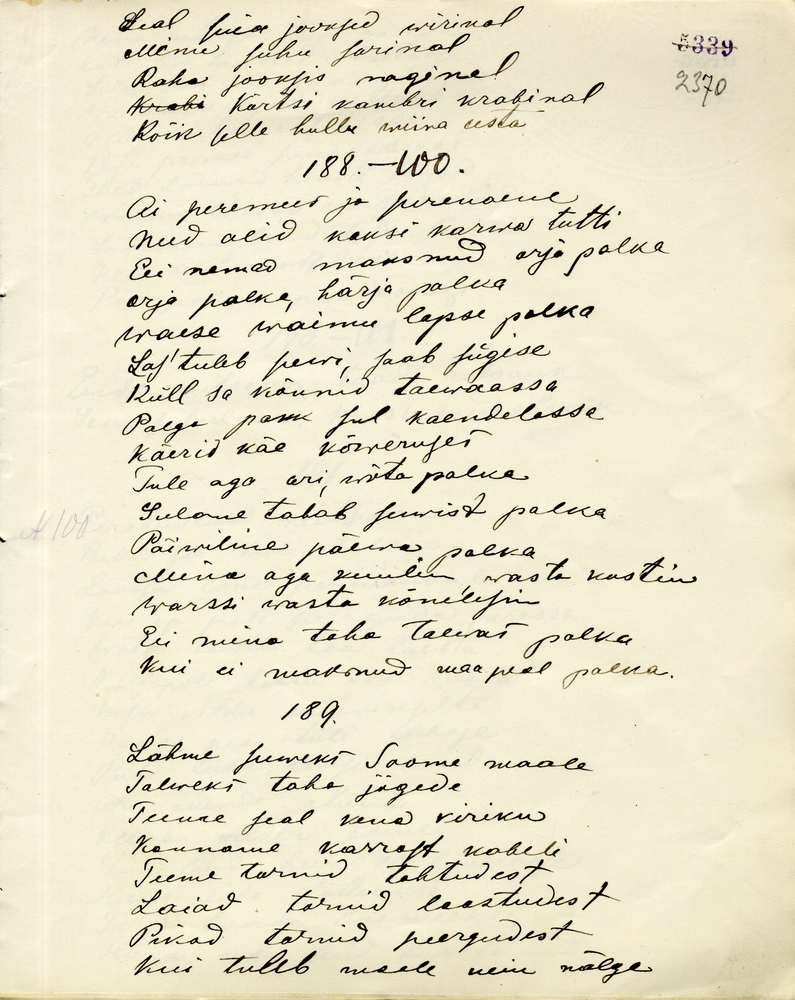 Seal siia jooksed wirinal
Mine suhu sorinal
5339
Raha jooksis naginal
2370
Krabi Kortsi kambri krabinal
Kõik selle hullu wiina eesta
188.—100.
Ai peremees ja perenaene
Need olid kaksi karwa tutti
Ei nemad maksnud orja palka
orja palka, härja palka
waese waimu lapse palka
Las' tuleb suwi, saab sügise
Küll sa kõnnid taewaassa
Palga pakk sul kaendelassa
Käerid käe kõwerusest
Tule aga ori, wõta palka
Sulane tahab suurist palka
N 100
Päiwiline päewa palka
Mina aga kuulin, wasta kostin
Warssi wasta kõnelesin
Ei mina taha taewast palka
Kui ei maksnud maapeal palka.
189.
Lähme suweks Soome maale
Talweks taha jõgede
Teeme seal kena kiriku
Kanname karrast kabeli
Teeme tornid tohtudest
Laiad tornid laastudest
Pikad tornid peergudest
Kui tuleb maale uein nälga